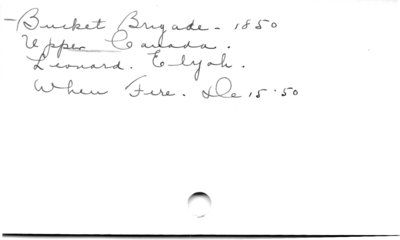 -Bucket Brigade - 1850
Upper Canada.
Leonard. Elyah.
When Fire. De 15.50